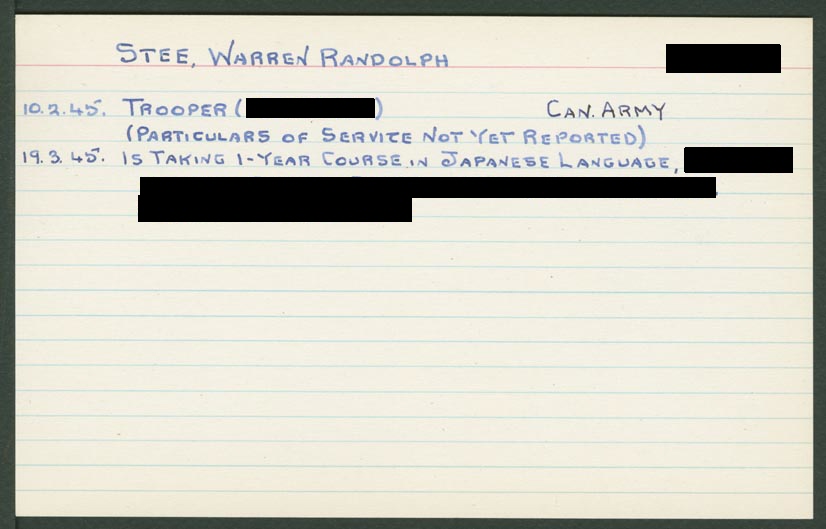 STEE, WARREN RANDOLPH
10.2.45. TROOPER ( ) CAN. ARMY
(PARTICULARS OF SERVICE NOT YET REPORTED)
19.3.45. IS TAKING 1-YEAR COURSE IN JAPANESE LANGUAGE,